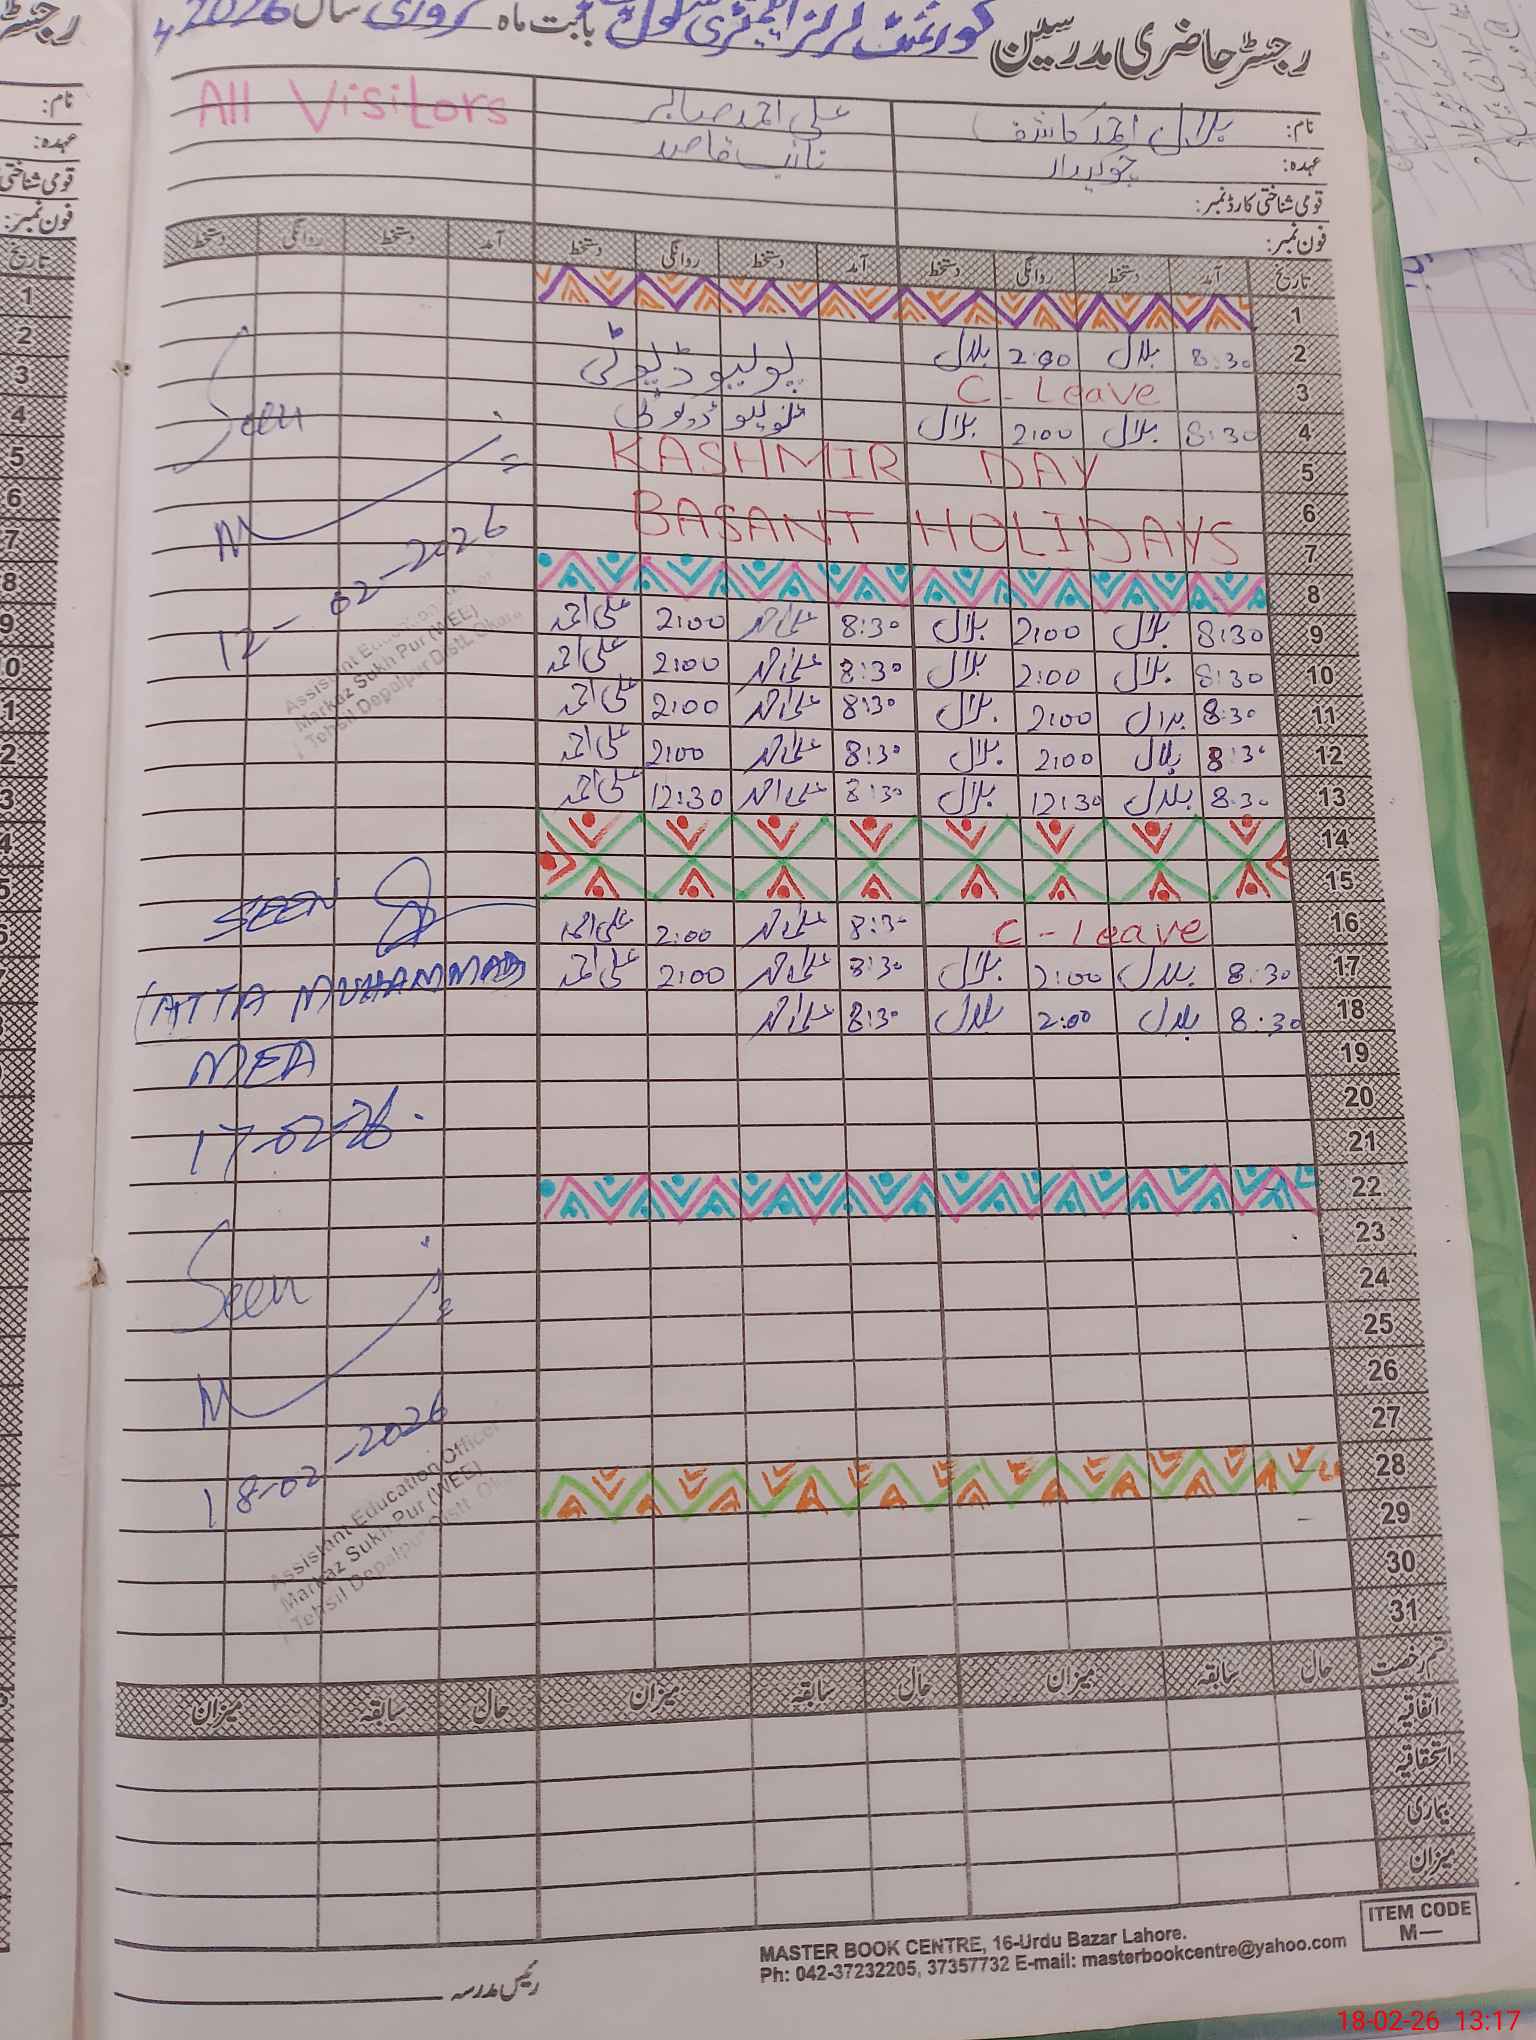 رجسٹر حاضری مدرسین گورنمنٹ گرلز ایلیمنٹری سکول بابت ماہ فروری سال 2026ء
نام: بلال احمد کاشف علی احمد صابر All Visitors
عہدہ: چوکیدار نائب قاصد
قومی شناختی کارڈ نمبر:
فون نمبر:
تاریخ آمد دستخط روانگی دستخط آمد دستخط روانگی دستخط آمد دستخط روانگی دستخط
1
2 8:30 بلال 2:00 بلال پولیو ڈیوٹی
3 C - Leave
4 8:30 بلال 2:00 بلال پولیو ڈیوٹی
5 KASHMIR DAY
6
7 BASANT HOLIDAYS
8
9 8:30 بلال 2:00 بلال 8:30 علی احمد 2:00 علی احمد
10 8:30 بلال 2:00 بلال 8:30 علی احمد 2:00 علی احمد
11 8:30 بلال 2:00 بلال 8:30 علی احمد 2:00 علی احمد
12 8:30 بلال 2:00 بلال 8:30 علی احمد 2:00 علی احمد
13 8:30 بلال 12:30 بلال 8:30 علی احمد 12:30 علی احمد
14
15
16 C - Leave 8:30 علی احمد 2:00 علی احمد
17 8:30 بلال 2:00 بلال 8:30 علی احمد 2:00 علی احمد
18 8:30 بلال 2:00 بلال 8:30 علی احمد
19
20
21
22
23
24
25
26
27
28
29
30
31
Seen
12-02-2026
Assistant Education Officer
Markaz Sukh Pur (WEE)
Tehsil Depalpur Distt. Okara
SEEN
(ATTA MUHAMMAD
MEA
17-02-26
Seen
18-02-2026
Assistant Education Officer
Markaz Sukh Pur (WEE)
Tehsil Depalpur Distt. Ok
قسم رخصت حال سابقہ میزان حال سابقہ میزان حال سابقہ میزان
اتفاقیہ
استحقاقیہ
بیماری
میزان
رئیس مدرسہ
MASTER BOOK CENTRE, 16-Urdu Bazar Lahore.
Ph: 042-37232205, 37357732 E-mail: masterbookcentre@yahoo.com
ITEM CODE
M—
رجسٹر
نام:
عہدہ:
قومی شناختی
فون نمبر:
تاریخ
1
2
3
4
5
6
7
8
9
18-02-26 13:17